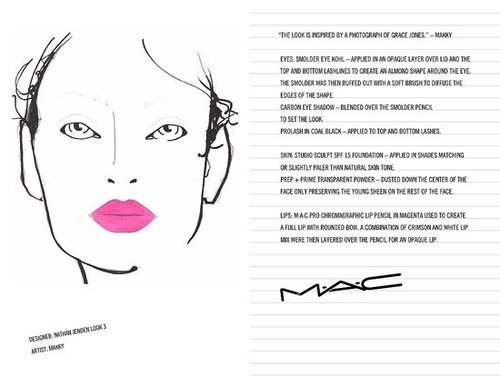 "THE LOOK IS INSPIRED BY A PHOTOGRAPH OF GRACE JONES." – MAKKY
EYES: SMOLDER EYE KOHL – APPLIED IN AN OPAQUE LAYER OVER LID AND THE
TOP AND BOTTOM LASHLINES TO CREATE AN ALMOND SHAPE AROUND THE EYE.
THE SMOLDER WAS THEN BUFFED OUT WITH A SOFT BRUSH TO DIFFUSE THE
EDGES OF THE SHAPE.
CARBON EYE SHADOW – BLENDED OVER THE SMOLDER PENCIL
TO SET THE LOOK.
PROLASH IN COAL BLACK – APPLIED TO TOP AND BOTTOM LASHES.
SKIN: STUDIO SCULPT SPF 15 FOUNDATION – APPLIED IN SHADES MATCHING
OR SLIGHTLY PALER THAN NATURAL SKIN TONE.
PREP + PRIME TRANSPARENT POWDER – DUSTED DOWN THE CENTER OF THE
FACE ONLY PRESERVING THE YOUNG SHEEN ON THE REST OF THE FACE.
LIPS: M·A·C PRO CHROMAGRAPHIC LIP PENCIL IN MAGENTA USED TO CREATE
A FULL LIP WITH ROUNDED BOW. A COMBINATION OF CRIMSON AND WHITE LIP
MIX WERE THEN LAYERED OVER THE PENCIL FOR AN OPAQUE LIP.
M·A·C
DESIGNER: NATHAN JENDEN LOOK 3
ARTIST: MAKKY